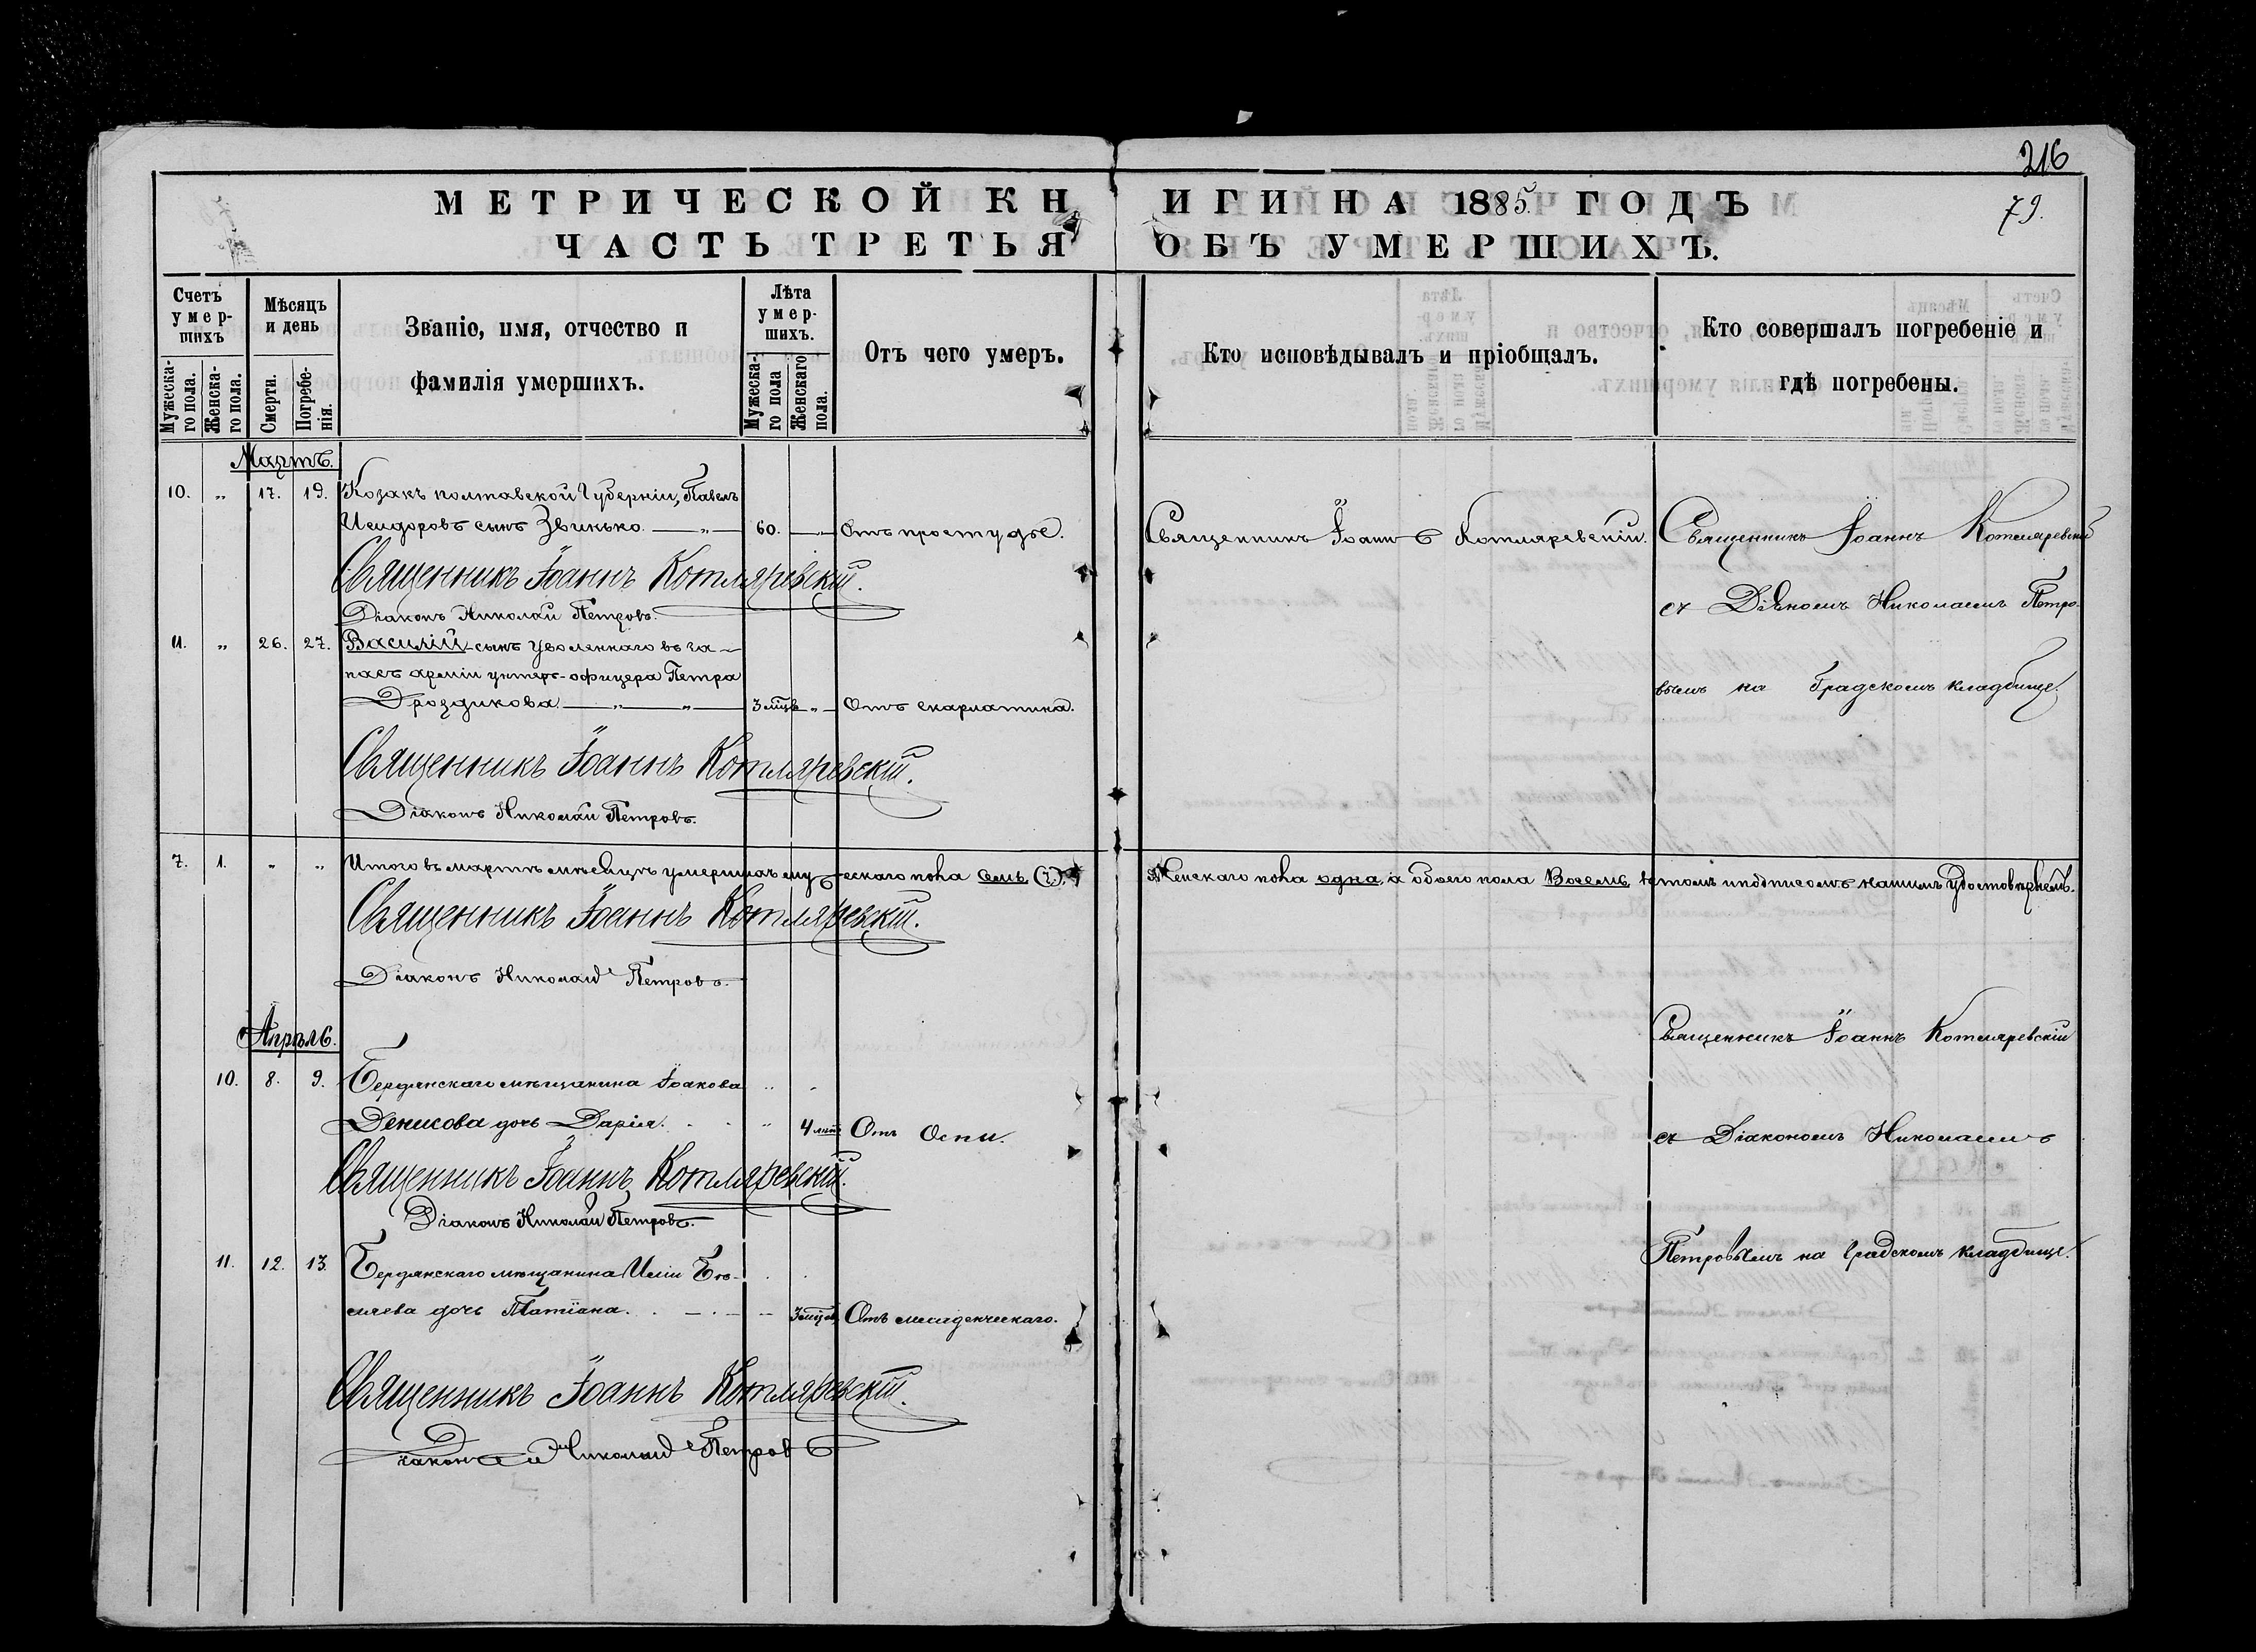 216
МЕТРИЧЕСКОЙ КНИГИ НА 1885. ГОДЪ
79.
ЧАСТЬ ТРЕТЬЯ ОБЪ УМЕРШИХЪ.
Счетъ умер-шихъ
Мужеска-го пола.
Женска-го пола.
Мѣсяцъ и день
Смерти.
Погребе-нія.
Званіе, имя, отчество и
фамилія умершихъ.
Лѣта умер-шихъ.
Мужеска-го пола
Женскаго пола.
Отъ чего умеръ.
Кто исповѣдывалъ и пріобщалъ.
Кто совершалъ погребеніе и
гдѣ погребены.
Мартъ.
10. „ 17. 19. Козакъ полтавской Губерніи, Павелъ
Исидоровъ сынъ Звинько. — „ — 60. — „ — Отъ простудѣ. Священникъ Іоаннъ Котляревскій. Священникъ Іоаннъ Котляревскій
Священникъ Іоаннъ Котляревскій.
Діаконъ Николай Петровъ.
съ Діакономъ Николаемъ Петро-
11. „ 26. 27. Василій сынъ уволеннаго въ за-
пасъ арміи унтеръ-офицера Петра
вымъ на Градскомъ кладбище.
Дроздикова — „ — „ — 3 мцв „ — Отъ скарлатина.
Священникъ Іоаннъ Котляревскій.
Діаконъ Николай Петровъ.
7. 1. „ „ Итого въ мартѣ мѣсяцѣ умершихъ мужескаго пола семь (7), Женскаго пола одна, а обоего пола Восемь въ томъ и подписомъ нашимъ удостовѣряемъ.
Священникъ Іоаннъ Котляревскій.
Діаконъ Николай Петровъ.
Апрѣль.
Священникъ Іоаннъ Котляревскій
10. 8. 9. Бердянскаго мѣщанина Іоакова
Денисова дочь Дарія. 4 лѣтъ Отъ Оспи.
съ Діакономъ Николаемъ
Священникъ Іоаннъ Котляревскій.
Діаконъ Николай Петровъ.
Петровымъ на Градскомъ кладбище.
11. 12. 13. Бердянскаго мѣщанина Иліи
дочь Татіана. 3 мцов. Отъ младенческаго.
Священникъ Іоаннъ Котляревскій.
Діаконъ Николай Петровъ